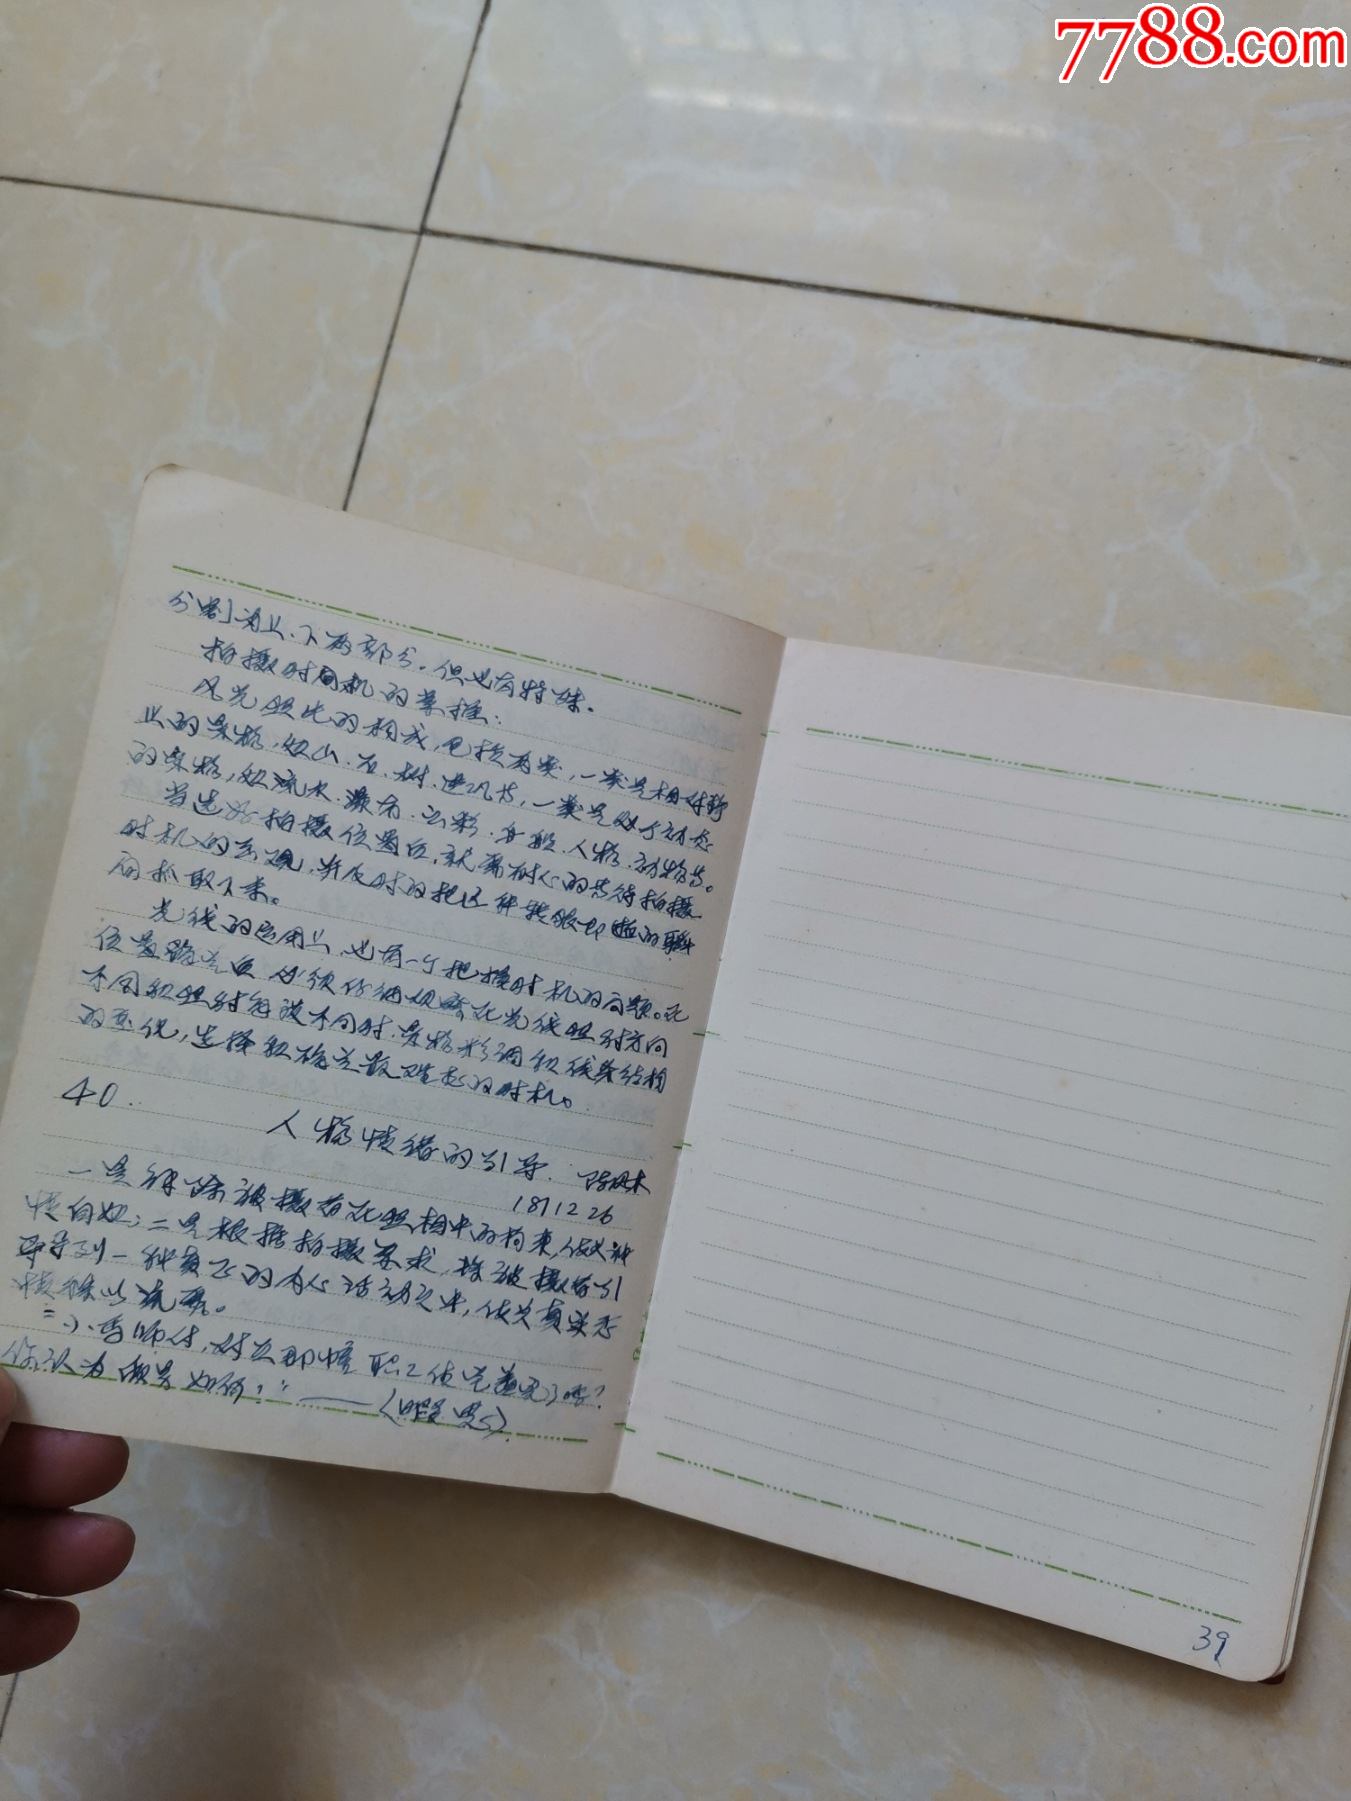 7788.com
分割为上、下两部分。但也有特殊。
拍摄时间机的掌握：
风光照片的构成，包括两类，一类是相对静
止的景物，如山、石、树、建筑等，一类是处于动态
的景物，如流水、瀑布、云彩、舟船、人物、动物等。
当选好拍摄位置后，就需耐心的等待拍摄
时机的出现，并及时的把这种转眼即逝的瞬
间抓取下来。
光线的运用上，也有一个把握时机的问题。在
位置确定后，必须仔细观察在光线照射方向
不同和照射角度不同时，景物影调和线条结构
的变化，选择和确定最理想的时机。
40.
人物情绪的引导.
187 12 26
一是解除被摄者在照相中的拘束，使其神
情自如；二是根据拍摄要求，将被摄者引
导到一种真正的内心活动之中，使其真实感
情得以流露。
李师付，对立即
你认为
39